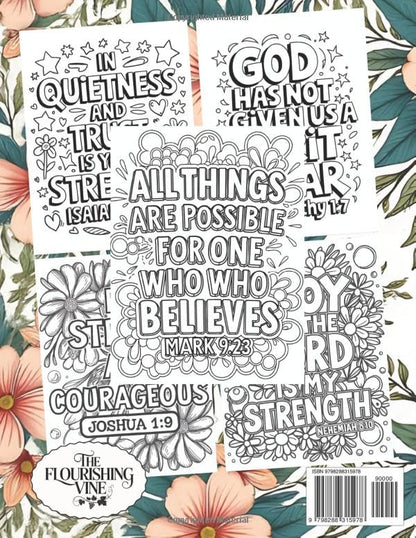 IN
QUIETNESS
AND
TRUST
IS Y
STRE
ISAIA
GOD
HAS NOT
GIVEN US A
IT
AR
thy 1:7
ALL THINGS
ARE POSSIBLE
FOR ONE
WHO WHO
BELIEVES
MARK 9:23
ST
COURAGEOUS
JOSHUA 1:9
OY
HE
RD
IS MY
STRENGTH
NEHEMIAH 8:10
THE
FLOURISHING
VINE
ISBN 9798288315978
90000
9 798288 315978